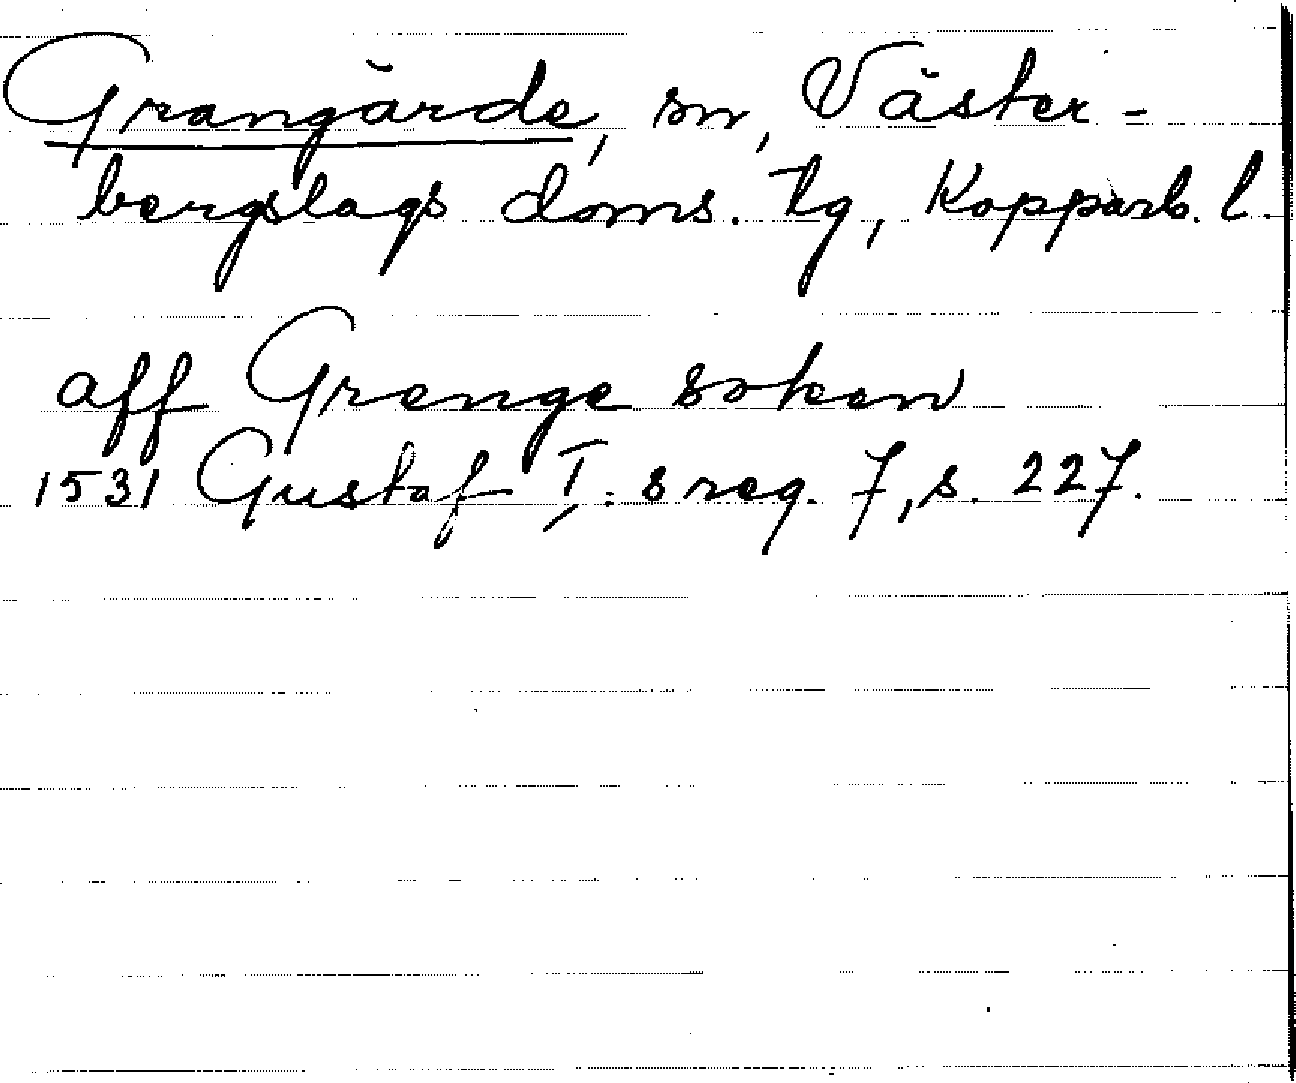 Grangärde, sn, Väster-
bergslags doms. tg, Kopparb. l.
aff Grenge soken
1531 Gustaf I:s reg. 7, s. 227.